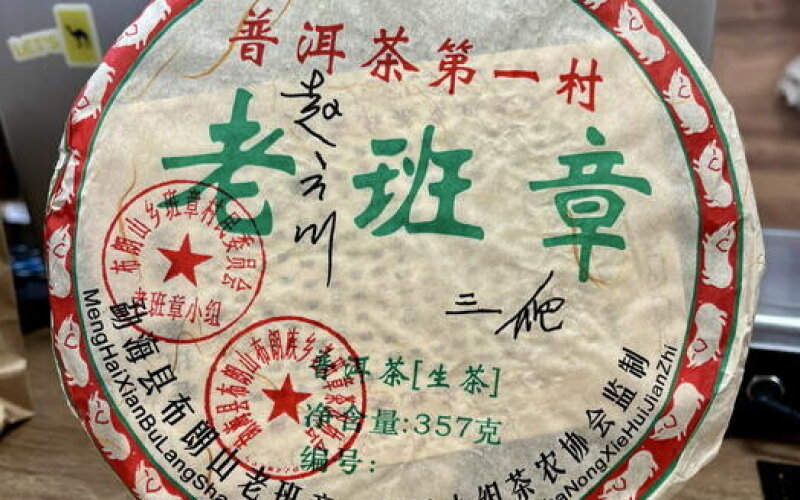 普洱茶第一村
老班章
赵
三爬
布朗山乡班章村村民委员会
老班章小组
勐海县布朗山布朗族乡
普洱茶[生茶]
净含量:357克
编号:
勐海县布朗山老班章
组茶农协会监制
MengHaiXianBuLangSha
NongXieHuiJianZhi